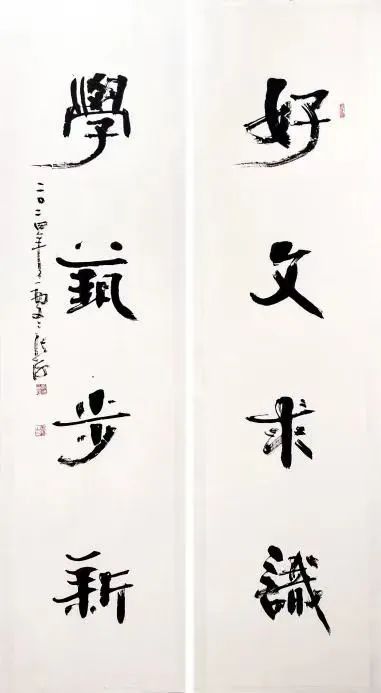 好文求識
學藝步新
二〇二四年